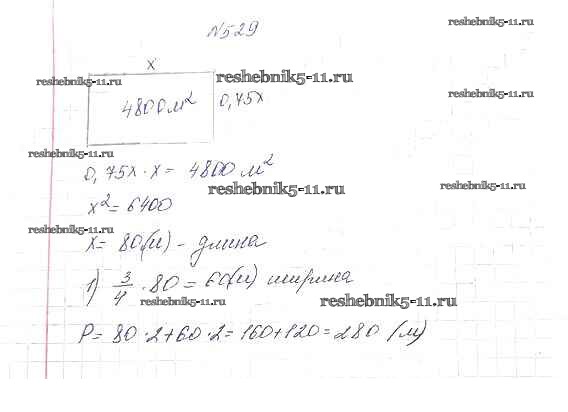 №529
reshebnik5-11.ru
x
reshebnik5-11.ru
reshebnik5-11.ru
4800 м²
0,75x
reshebnik5-11.ru
reshebnik5-11.ru
0,75x · x = 4800 м²
reshebnik5-11.ru
reshebnik5-11.ru
x² = 6400
reshebnik5-11.ru
x = 80(м) - длина
1) 3/4 · 80 = 60(м) ширина
reshebnik5-11.ru
reshebnik5-11.ru
P = 80 · 2 + 60 · 2 = 160 + 120 = 280 (м)